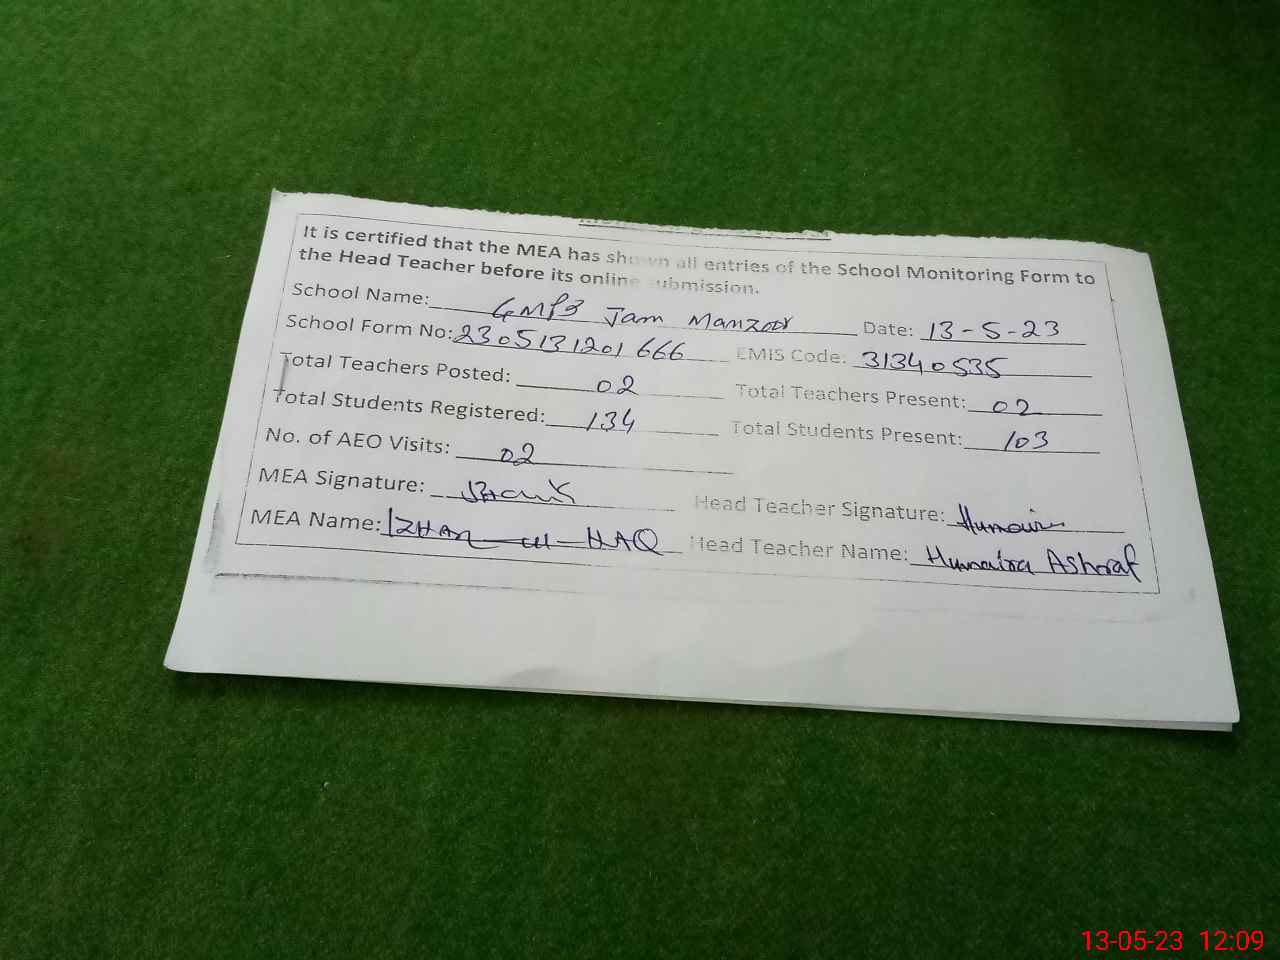 It is certified that the MEA has shown all entries of the School Monitoring Form to
the Head Teacher before its online submission.
School Name: GMPS Jam Manzoor Date: 13-5-23
School Form No: 2305131201666 EMIS Code: 31340535
Total Teachers Posted: 02 Total Teachers Present: 02
Total Students Registered: 134 Total Students Present: 103
No. of AEO Visits: 02
MEA Signature: Head Teacher Signature: Humaira
MEA Name: IZHAR-ul-HAQ Head Teacher Name: Humaira Ashraf
13-05-23 12:09